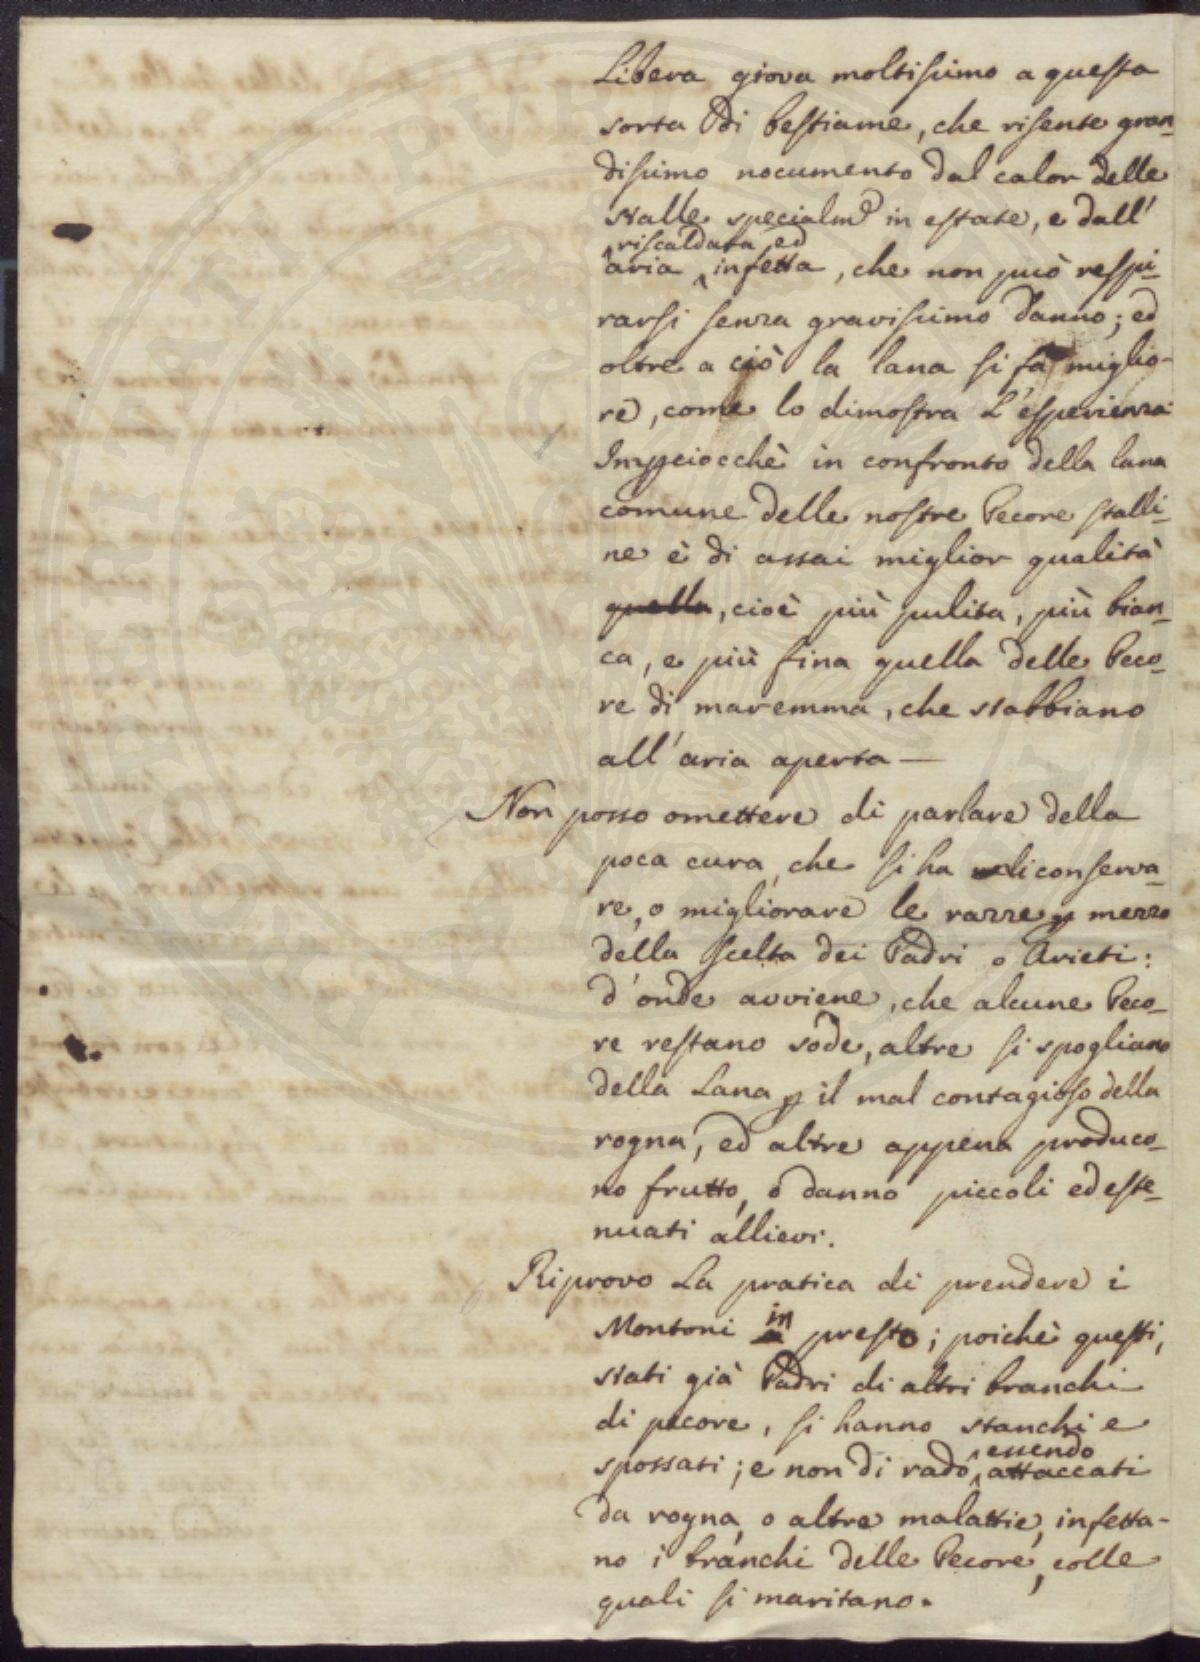 Libera giova moltissimo a questa
sorta di bestiame, che risente gran-
dissimo nocumento dal calor delle
stalle specialm.e in estate, e dall'
riscaldata ed
aria infetta, che non può respi-
rarsi senza gravissimo danno; ed
oltre a ciò la lana si fa miglio-
re, come lo dimostra L'esperienza
Imperciocchè in confronto della lana
comune delle nostre Pecore stalli-
ne è di assai miglior qualità
quella, cioè più pulita, più bian-
ca, e più fina quella delle Peco-
re di maremma, che stabbiano
all'aria aperta —
Non posso omettere di parlare della
poca cura, che si ha di conserva-
re, o migliorare le razze p mezzo
della scelta dei Padri o Arieti:
d'onde avviene, che alcune Peco-
re restano sode, altre si spogliano
della Lana p il mal contagioso della
rogna, ed altre appena produco-
no frutto, o danno piccoli ed este-
nuati allievi.
Riprovo La pratica di prendere i
in
Montoni a presto; poichè questi,
stati già Padri di altri branchi
di pecore, si hanno stanchi e
essendo
spossati; e non di rado attaccati
da rogna, o altre malattie, infetta-
no i branchi delle Pecore, colle
quali si maritano.